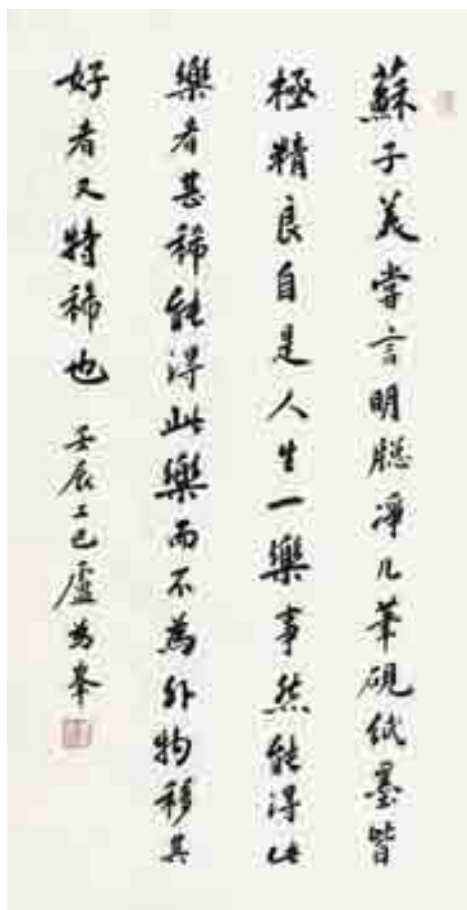 蘇子美嘗言明聰淨几筆硯紙墨皆
極精良自是人生一樂事然能得此
樂者甚稀能得此樂而不為外物移其
好者又特稀也
壬辰 盧為峯